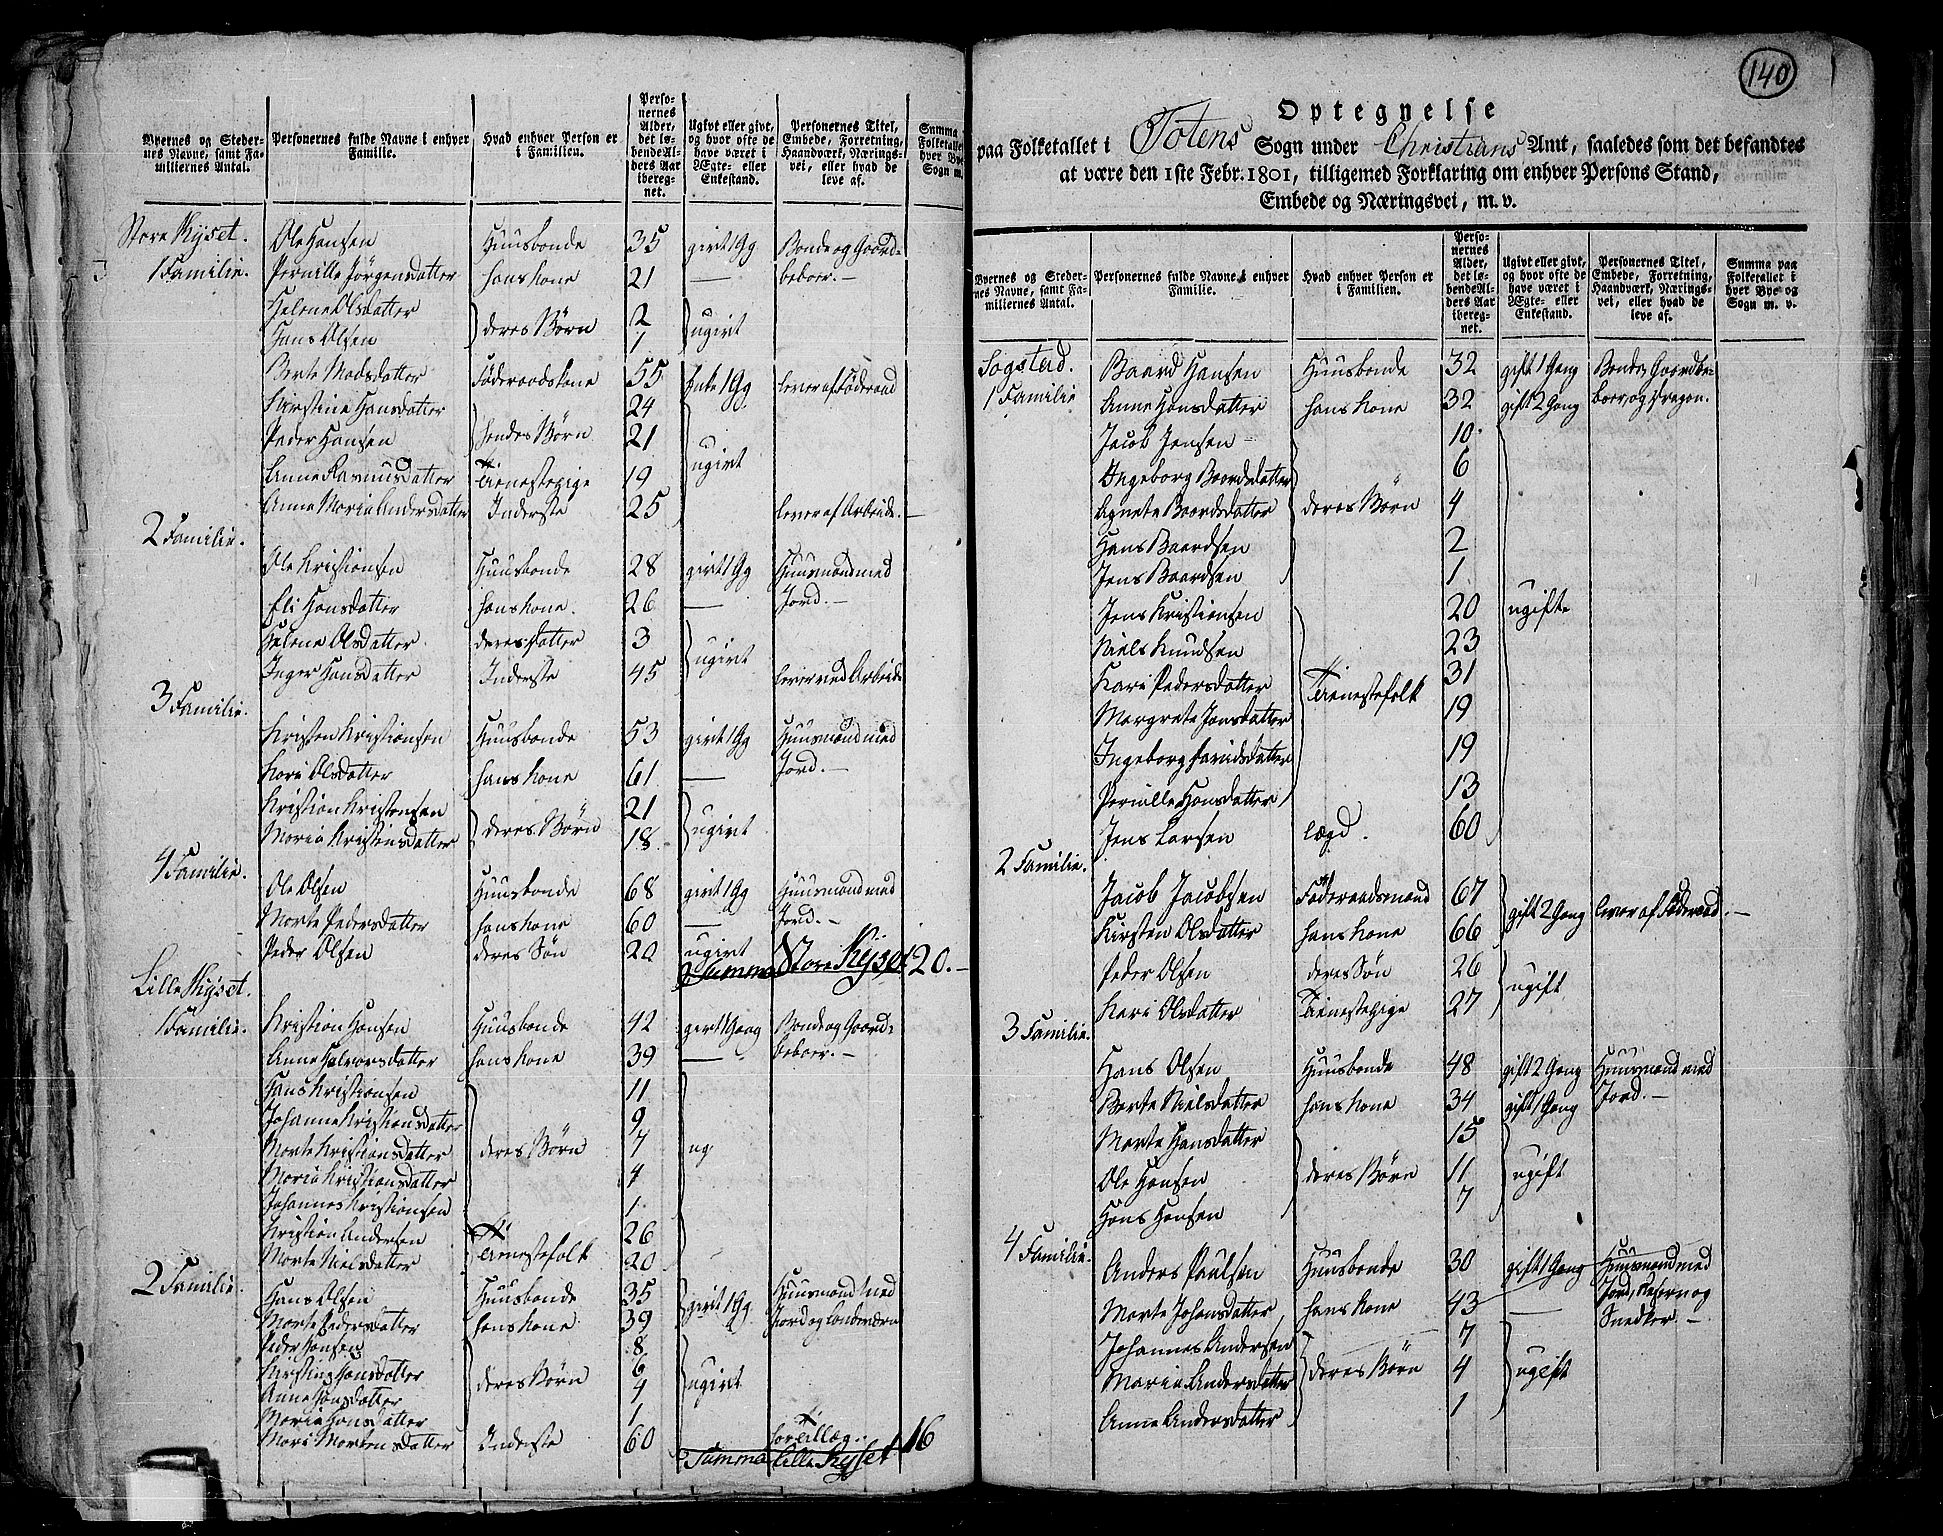 Byernes og Steder- nes Navne, samt Fa- miliernes Antal. | Personernes fulde Navne i enhver Familie. | Hvad enhver Person er i Familien. | Perso- nernes Alder, det lø- bende Al- ders Aar iberegnet. | Ugivt eller givt, og hvor ofte de have været i Ægte- eller Enkestand. | Personernes Titel, Embede, Forretning, Haandværk, Nærings- vei, eller hvad de leve af. | Summa Folketallet hver Bye Sogn m.
Store Kyset. Ole Hansen Huusbonde 35 givt 1 Gg Bonde og Gaard-
1 Familie. Pernille Jørgensdatter hans Kone 21 — beboer.—
Helene Olsdatter 2
Hans Olsen deres Børn 1 ugivt
Berte Madsdatter Føderaadskone 55 Enke 1 Gg lever af Føderaad
Kirstine Hansdatter 24
Peder Hansen hendes Børn 21 ugivt
Anne Rasmusdatter Tienestepige 19
Anne Maria Andersdatter Inderste 25 lever af Arbeide.—
2 Familie.
Ole Kristiansen Huusbonde 28 givt 1 Gg Huusmand med
Eli Hansdatter hans Kone. 26 — Jord.—
Helene Olsdatter. deres datter 3 ugivt
Inger Hansdatter Inderste 45 lever ved Arbeide
3 Familie.
Kristen Kristiansen Huusbonde 53 givt 1 Gg Huusmand med
Kari Olsdatter hans Kone 61 — Jord.—
Kristian Kristensen 21
Maria Kristensdatter deres Børn 18. ugivt
4 Familie.
Ole Olsen Huusbonde 68 givt 1 Gg Huusmand med
Marte Pedersdatter hans Kone 60 — Jord.—
Peder Olsen deres Søn 20 ugivt
Summa Store Kyset 20.—
Lille Kyset.
1 Familie. Kristian Hansen Huusbonde 42 givt 1 Gang Bonde og Gaard-
Anne Halvorsdatter hans Kone 39 — beboer.—
Hans Kristiansen 11
Johanne Kristiansdatter 9
Marte Kristiansdatter deres Børn 7 ug
Maria Kristiansdatter 4
Johannes Kristiansen 1.
Kristian Andersen 26
Marte Nielsdatter Tienestefolk 20
2 Familie. Hans Olsen Huusbonde 35 givt 1 Gg Huusmand med
Marte Pedersdatter hans Kone. 39 Jord og
Peder Hansen 8
Kirstine Hansdatter deres Børn 6 ugivt
Anne Hansdatter 4
Maria Hansdatter 1
Mari Mortensdatter Inderste 60
Summa Lille Kyset 16
140
Optegnelse
paa Folketallet i Totens Sogn under Christians Amt, saaledes som det befandtes
at være den 1ste Febr. 1801, tilligemed Forklaring om enhver Persons Stand,
Embede og Næringsvei, m. v.
Byernes og Steder- nes Navne, samt Fa- miliernes Antal. | Personernes fulde Navne i enhver Familie. | Hvad enhver Person er i Familien. | Perso- nernes Alder, det lø- bende Al- ders Aar ibereg- net. | Ugivt eller givt, og hvor ofte de have været i Ægte- eller Enkestand. | Personernes Titel, Embede, Forretning, Haandværk, Nærings- vei, eller hvad de leve af. | Summa paa Folketallet i hver Bye og Sogn m. v.
Sogstad. Baard Hansen Huusbonde 32 gift 1 Gang Bonde, Gaardbe-
1 Familie Anne Hansdatter hans Kone 32 gift 2 Gang boer, og Dragon.
Jacob Jensen 10.
Ingeborg Baardsdatter 6
Agnete Baardsdatter deres Børn 4
Hans Baardsen 2
Jens Baardsen 1.
Jens Kristiansen 20 ugifte
Niels Knudsen 23
Kari Pedersdatter Tienestefolk 31
Margrete Jensdatter 19
Ingeborg 19
Pernille Hansdatter 13
Jens Larsen lægd. 60
2 Familie.
Jacob Jacobsen Føderaadsmand 67 gift 2 Gang lever af Føderaad.—
Kirsten Olsdatter hans Kone 66
Peder Olsen deres Søn 26 ugift
Kari Olsdatter Tienestepige 27
3 Familie.
Hans Olsen Huusbonde 48 gift 2 Gang Huusmand med
Berte Nielsdatter hans Kone 34 gift 1 Gang Jord.—
Marte Hansdatter 15
Ole Hansen deres Børn 11 ugift
Hans Hansen 7
4 Familie.
Anders Paulsen Huusbonde 30 gift 1 Gang Huusmand med
Marte Johansdatter hans Kone 43 — Jord, og
Johannes Andersen 7 Snedker.—
Maria Andersdatter deres Børn 4 ugift
Anne Andersdatter 1